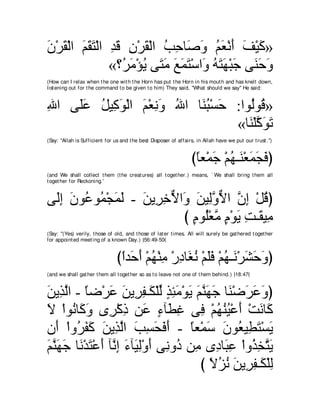 «كَيْفَ أَنْعَمُ وَصَاحِبُ الْقَرْنِ قَدِ الْتَقَمَ الْقَرْنَ
وَحَنَى جَبْهَتَهُ وَاسْتَمَعَ مَتَى يُؤْمَرُ؟»
(How can I relax when the one with the Horn has put the Horn in his mouth and has knelt down, listening out for the command to be given to him) They said, "What should we say'' He said:
«قُولُوا: حَسْبُنَا اللهُ وَنِعْمَ الْوَكِيلُ عَلَى اللهِ
تَوَكَّلْنَا»
(Say: "Allah is Sufficient for us and the best Disposer of affairs, in Allah have we put our trust.'')
(فَجَمَعْنَـهُمْ جَمْعاً)
(and We shall collect them (the creatures) all together.) means, `We shall bring them all together for Reckoning.'
(قُلْ إِنَّ الاٌّوَّلِينَ وَالاٌّخِرِينَ - لَمَجْمُوعُونَ إِلَى
مِيقَـتِ يَوْمٍ مَّعْلُومٍ )
(Say: "(Yes) verily, those of old, and those of later times. All will surely be gathered together for appointed meeting of a known Day.) (56:49-50)(
(وَحَشَرْنَـهُمْ فَلَمْ نُغَادِرْ مِنْهُمْ أَحَداً)
(and we shall gather them all together so as to leave not one of them behind.) (18:47)
(وَعَرَضْنَا جَهَنَّمَ يَوْمَئِذٍ لِّلْكَـفِرِينَ عَرْضاً - الَّذِينَ
كَانَتْ أَعْيُنُهُمْ فِى غِطَآءٍ عَن ذِكْرِى وَكَانُواْ لاَ
يَسْتَطِيعُونَ سَمْعاً - أَفَحَسِبَ الَّذِينَ كَفَرُواْ أَن
يَتَّخِذُواْ عِبَادِى مِن دُونِى أَوْلِيَآءَ إِنَّآ أَعْتَدْنَا جَهَنَّمَ
لِلْكَـفِرِينَ نُزُلاً )